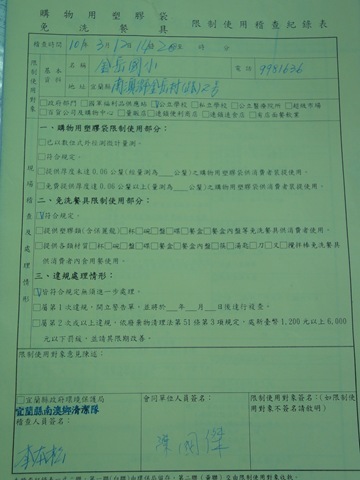 購物用塑膠袋
免洗餐具 限制使用稽查紀錄表
稽查時間 10月3日12時14 分
限制使用對象 基本資料 名稱 金岳國小 電話 9981636
地址 宜蘭縣南澳鄉金岳村 2號
□政府部門 □國軍福利品供應站 ☑公立學校 □私立學校 □公立醫療院所 □超級市場
□百貨公司及購物中心 □量販店 □連鎖便利商店 □連鎖速食店 □有店面餐飲業
現場稽查及處理情形
一、購物用塑膠袋限制使用部分：
□已以數位式外徑測微計量測。
□符合規定。
□提供厚度未達0.06公釐(經量測為___公釐)之購物用塑膠袋供消費者裝提使用。
□免費提供厚度達0.06公釐以上(量測為___公釐)之購物用塑膠袋供消費者裝提使用。
二、免洗餐具限制使用部分：
☑符合規定。
□提供塑膠類(含保麗龍)□杯□碗□盤□碟□餐盒□餐盒內盤等免洗餐具供消費者使用。
□提供各類材質□杯□碗□盤□碟□餐盒□餐盒內盤□筷□湯匙□刀□叉□攪拌棒免洗餐具供
消費者內食用餐使用。
三、違規處理情形：
☑皆符合規定無須進一步處理。
□屬第1次違規，開立警告單，並將於___年___月___日後進行複查。
□屬第2次或以上違規，依廢棄物清理法第51條第3項規定，處新臺幣1,200元以上6,000
元以下罰鍰，並請其限期改善。
限制使用對象意見陳述：
□宜蘭縣政府環境保護局
宜蘭縣南澳鄉清潔隊
稽查人員簽名：
會同單位人員簽名：
限制使用對象簽名：(如限制使
用對象不簽名請敘明)